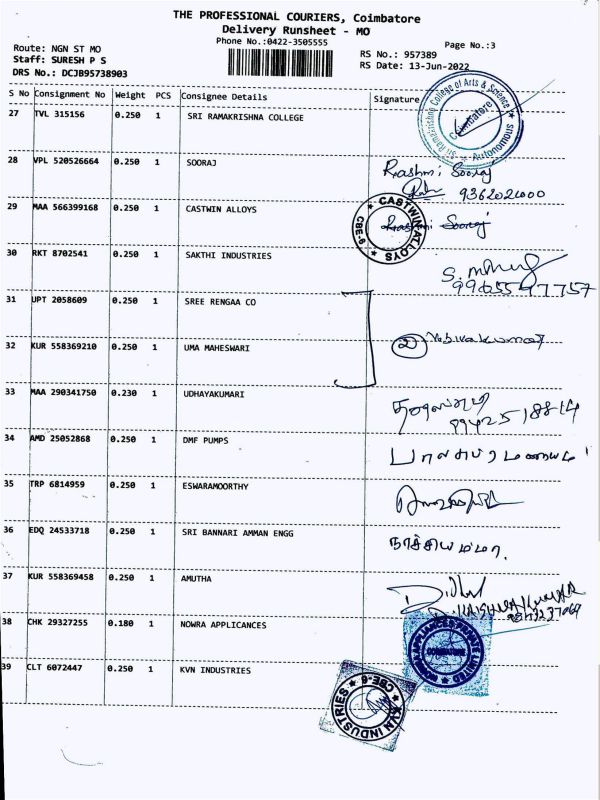 THE PROFESSIONAL COURIERS, Coimbatore
Delivery Runsheet - MO
Phone No.:0422-3505555
Page No.:3
Route: NGN ST MO
Staff: SURESH P S
DRS No.: DCJB95738903
RS No.: 957389
RS Date: 13-Jun-2022
S No Consignment No Weight PCS Consignee Details Signature
27 TVL 315156 0.250 1 SRI RAMAKRISHNA COLLEGE
Ramakrishna College of Arts & Science
Coimbatore
Autonomous
28 VPL 520526664 0.250 1 SOORAJ Rashmi Sooraj
9362021000
29 MAA 566399168 0.250 1 CASTWIN ALLOYS
CASTWIN ALLOYS
CBE-6
30 RKT 8702541 0.250 1 SAKTHI INDUSTRIES
31 UPT 2058609 0.250 1 SREE RENGAA CO
32 KUR 558369210 0.250 1 UMA MAHESWARI 2
33 MAA 290341750 0.230 1 UDHAYAKUMARI
34 AMD 25052868 0.250 1 DMF PUMPS
35 TRP 6814959 0.250 1 ESWARAMOORTHY
36 EDQ 24533718 0.250 1 SRI BANNARI AMMAN ENGG
37 KUR 558369458 0.250 1 AMUTHA
38 CHK 29327255 0.180 1 NOWRA APPLICANCES
APPLIANCES PRIVATE LIMITED
COIMBATORE
39 CLT 6072447 0.250 1 KVN INDUSTRIES
KVN INDUSTRIES
CBE-6